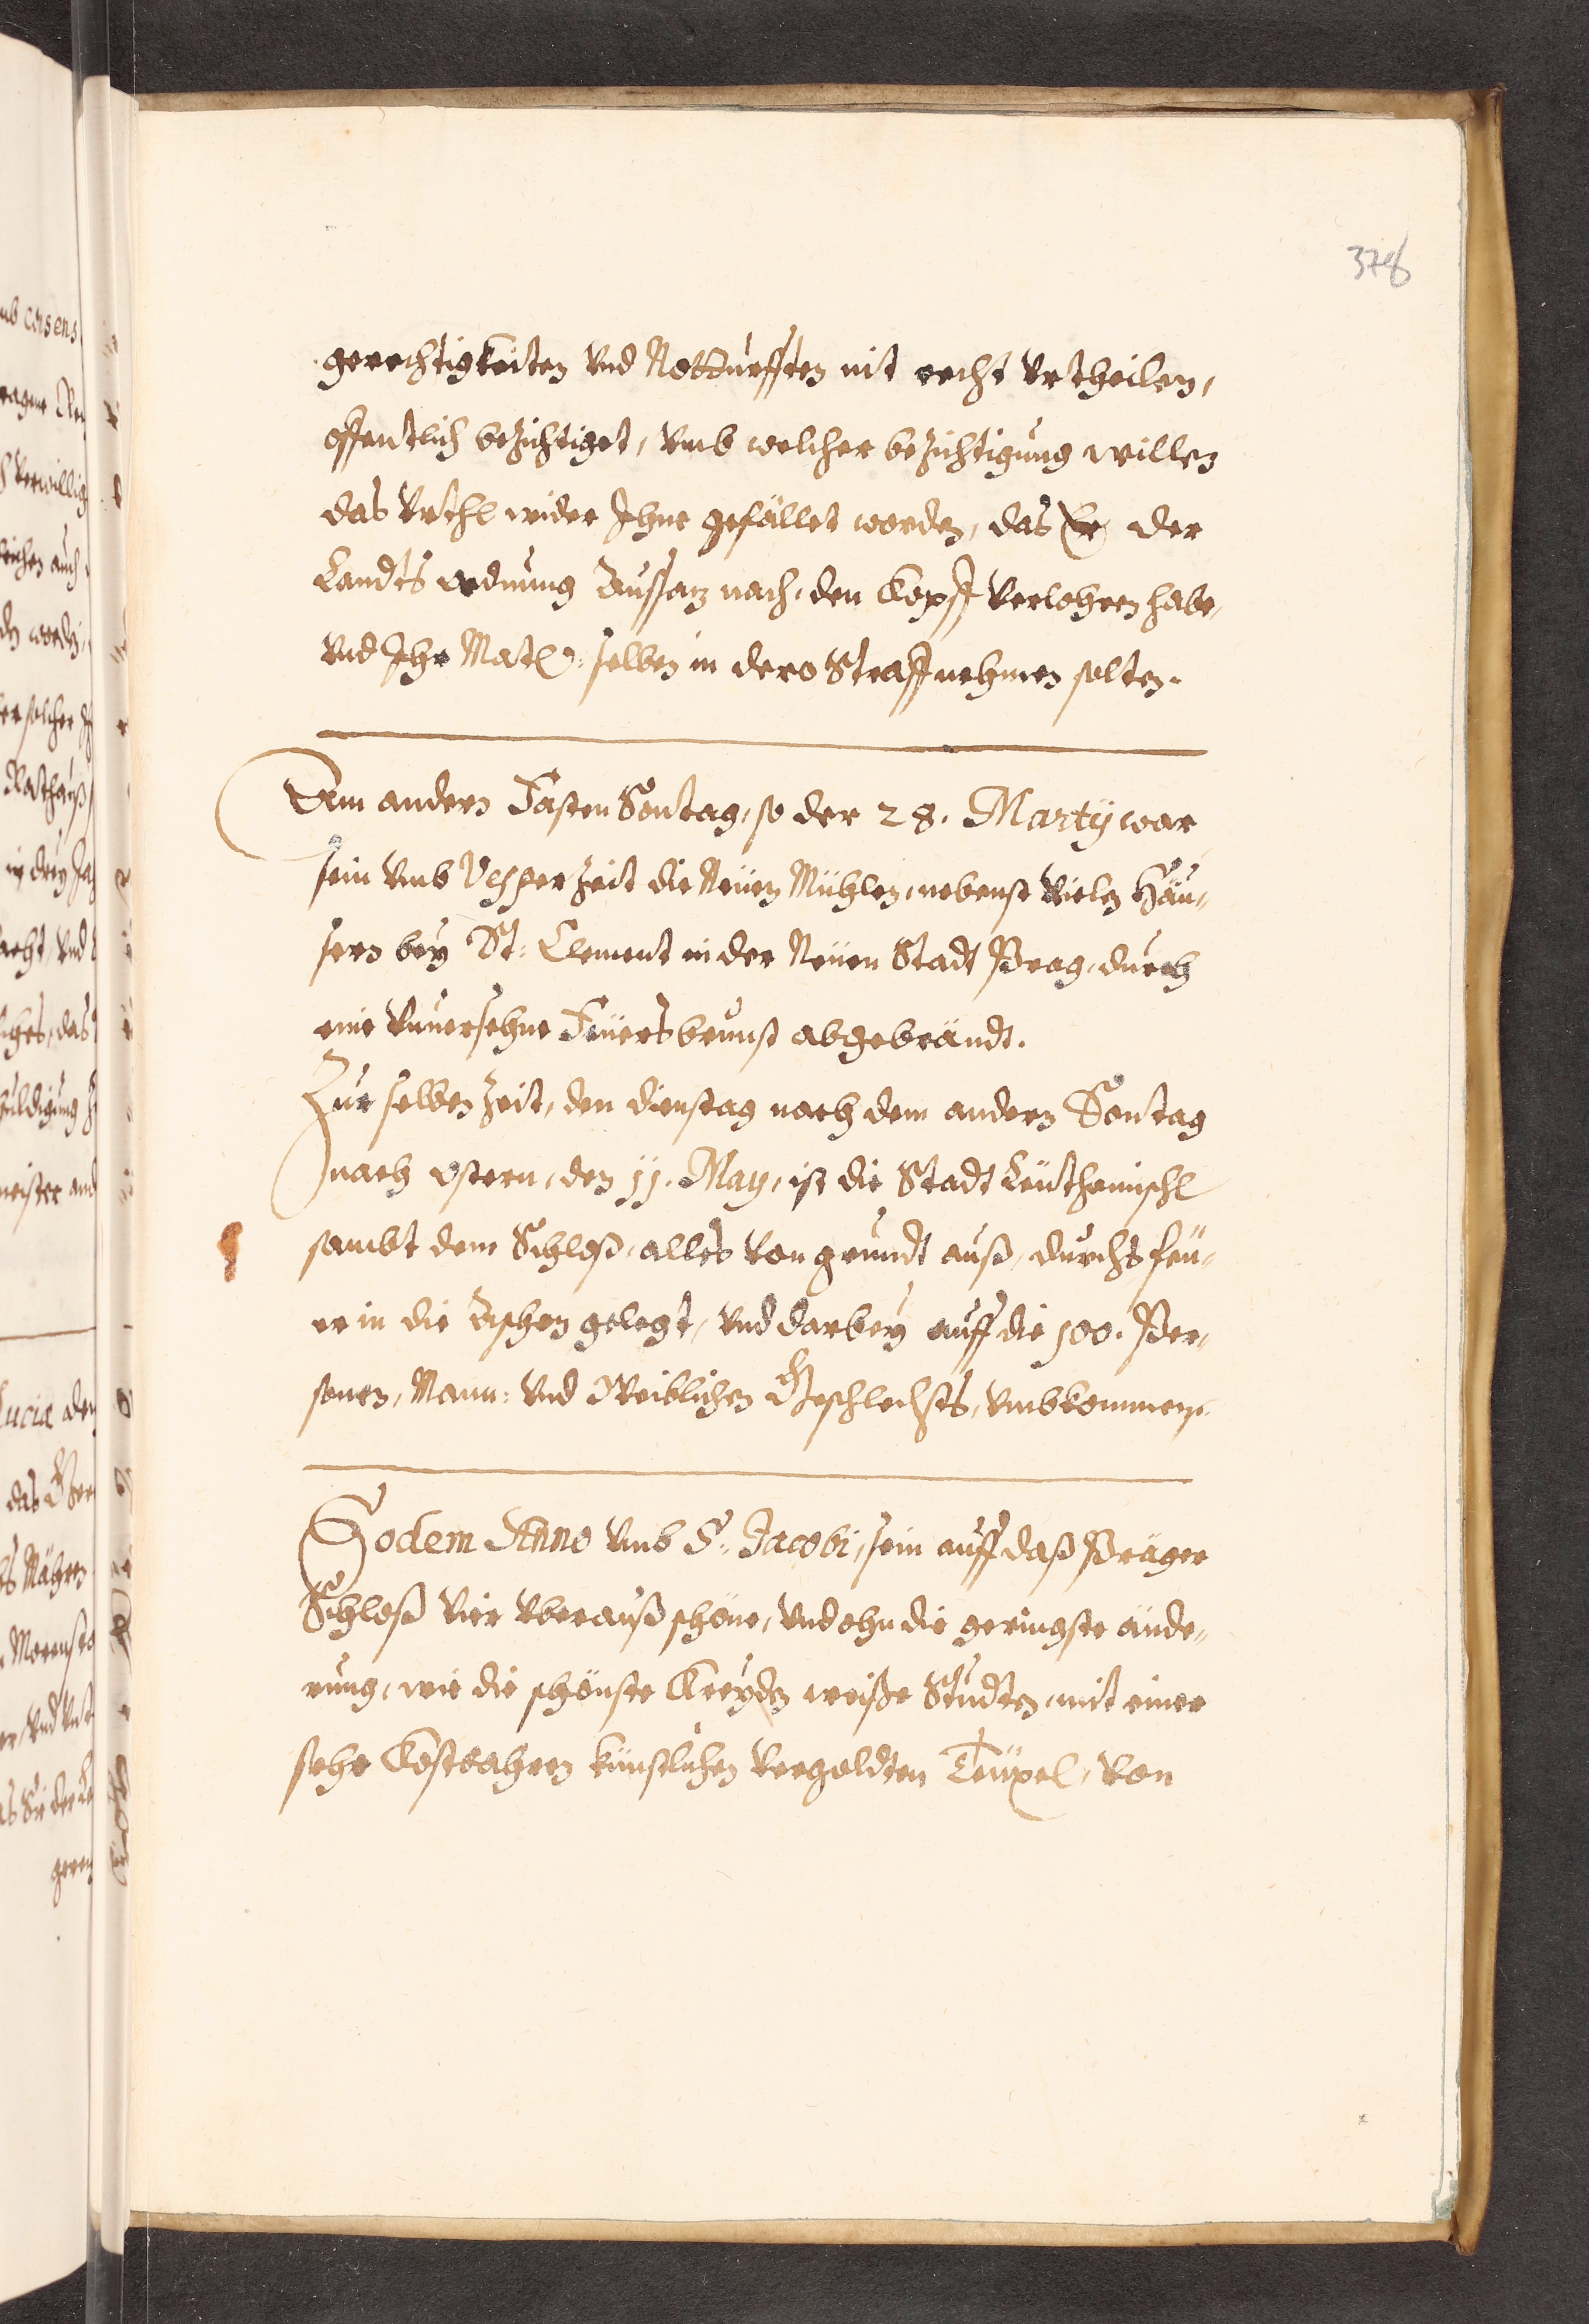 378
gerechtigkeiten vnd Notturfften nit recht vrtheilen,
offentlich bezichtiget, vmb welcher bezichtigung willen
das vrthl wider Ihne gefället worden, das Er der
Landts ordnung Aussatz nach, den Kopff verlohren habe,
vnd Ihr Matt: selben in dero Straff nehmen solten.
Am andern Fasten Sontag, so der 28. Martÿ war
sein vmb Vesper zeit die Neüen Mühlen, nebenst vielen Häu-
sern beÿ St: Clement in der Neüen Stadt Prag, durch
eine vnuersehne Feüersbrunst abgebrändt.
Zur selben zeit, den dienstag nach dem andern Sontag
nach ostern, den 11. Maÿ, ist die Stadt Leüthomischl
sambt dem Schloß, alles von grundt auß, durchs feü-
er in die Aschen gelegt, vnd darbeÿ auff die 100. Per-
sonen, Mann: vnd Weiblichen Geschlechts, vmbkommen.
Eodem Anno vmb S: Jacobi, sein auff daß Präger
Schloß vier vberauß schöne, vnd ohn die geringste ände-
rung, wie die schönste Kreÿden weiße Studten, mit einer
sehr Kostbahren künstlichen vergoldten Teüxel, von